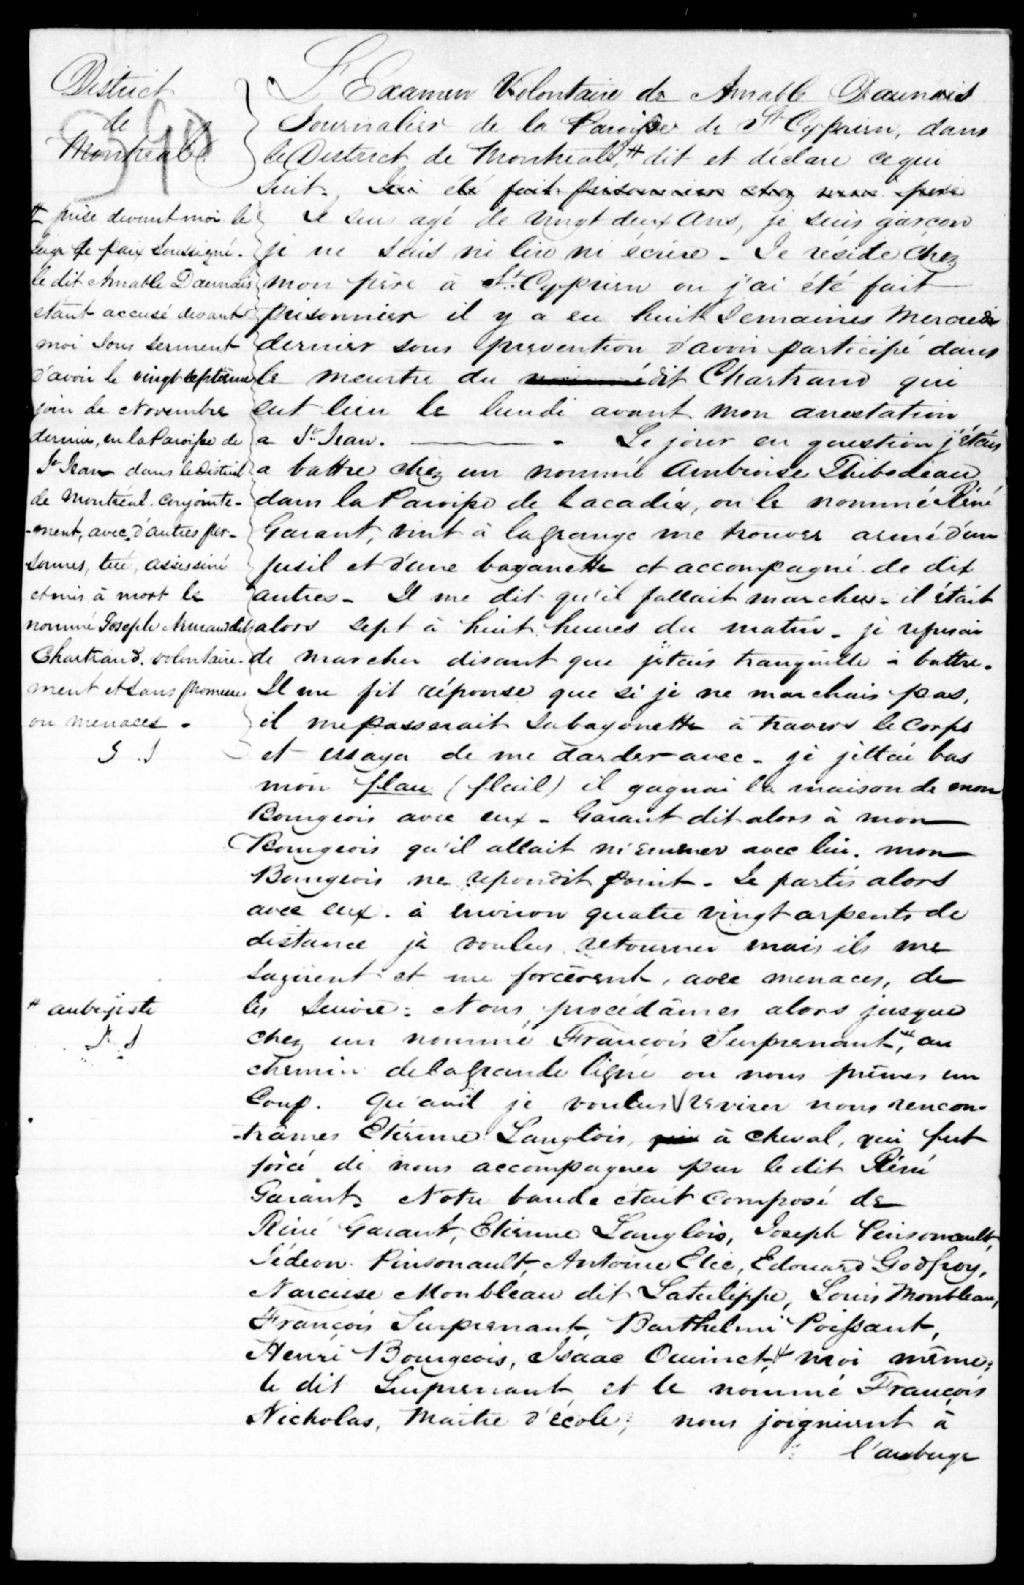 District
de
Montréal
L'Examen Volontaire de Amable Daunais
Journalier de la Paroisse de St Cyprien, dans
le District de Montréal, # dit et déclare ce qui
suit, J'ai été fait prisonnier chez mon père
Je suis agé de vingt deux Ans, je suis garçon
je ne sais ni lire ni écrire - Je réside chez
mon père à St. Cyprien ou j'ai été fait
prisonnier il y a eu huit semaines Mercredi
dernier sous prevention d'avoir participé dans
le meurtre du nommé dit Chartrand qui
eut lieu le lundi avant mon arrestation
a St. Jean. - Le jour en question j'étais
a battre chez un nommé Ambroise Thibodeau
dans la Paroisse de Lacadie, ou le nommé Réné
Garant, vint à la grange me trouver armé d'un
fusil et d'une bayonette et accompagné de dix
autres - Il me dit qu'il fallait marcher - il était
alors sept à huit heures du matin - je refusai
de marcher disant que j'étais tranquille à battre.
Il me fit réponse que si je ne marchais pas,
il me passerait sa bayonette à travers le corps
et essaya de me darder avec - je jettai bas
mon flau (flail) il gagnai la maison de mon
Bourgeois avec eux - Garant dit alors à mon
Bourgeois qu'il allait m'emmener avec lui. mon
Bourgeois ne repondit point - Je partis alors
avec eux. à environ quatre vingt arpents de
distance je voulus retourner mais ils me
sagirent et me forcèrent, avec menaces, de
les suivre: Nous procédâmes alors jusque
chez un nommé François Surprenant, # au
chemin de la grande ligne ou nous prîmes un
Coup. Qu'avil je voulus reviser nous rencon-
-trâmes Etienne Langlois, qui à cheval, qui fut
forcé de nous accompagner par le dit Réné
Garant. Notre bande était composé de
Réné Garant, Etienne Langlois, Joseph Pinsonault,
Gédeon Pinsonault, Antoine Elie, Edouard Godfroy,
Narcisse Monbleau dit Latulippe, Louis Monbleau,
François Surprenant, Barthelmi Poissant,
Henri Bourgeois, Isaac Ouimet, # moi même;
le dit Surprenant et le nommé François
Nicholas, Maître d'école, nous joignirent à
l'auberge
# prise devant moi le
Juge de paix soussigné -
le dit Amable Daunais
étant accusé devant
moi sous serment
d'avoir le vingt septieme
jour de Novembre
dernier, en la Paroisse de
St Jean dans le District
de Montréal conjointe-
-ment, avec d'autres per-
sonnes, tué, assassiné
et mis à mort le
nommé Joseph Armand dit
Chartrand, volontaire-
ment et sans promesses
ou menaces.
# aubergiste